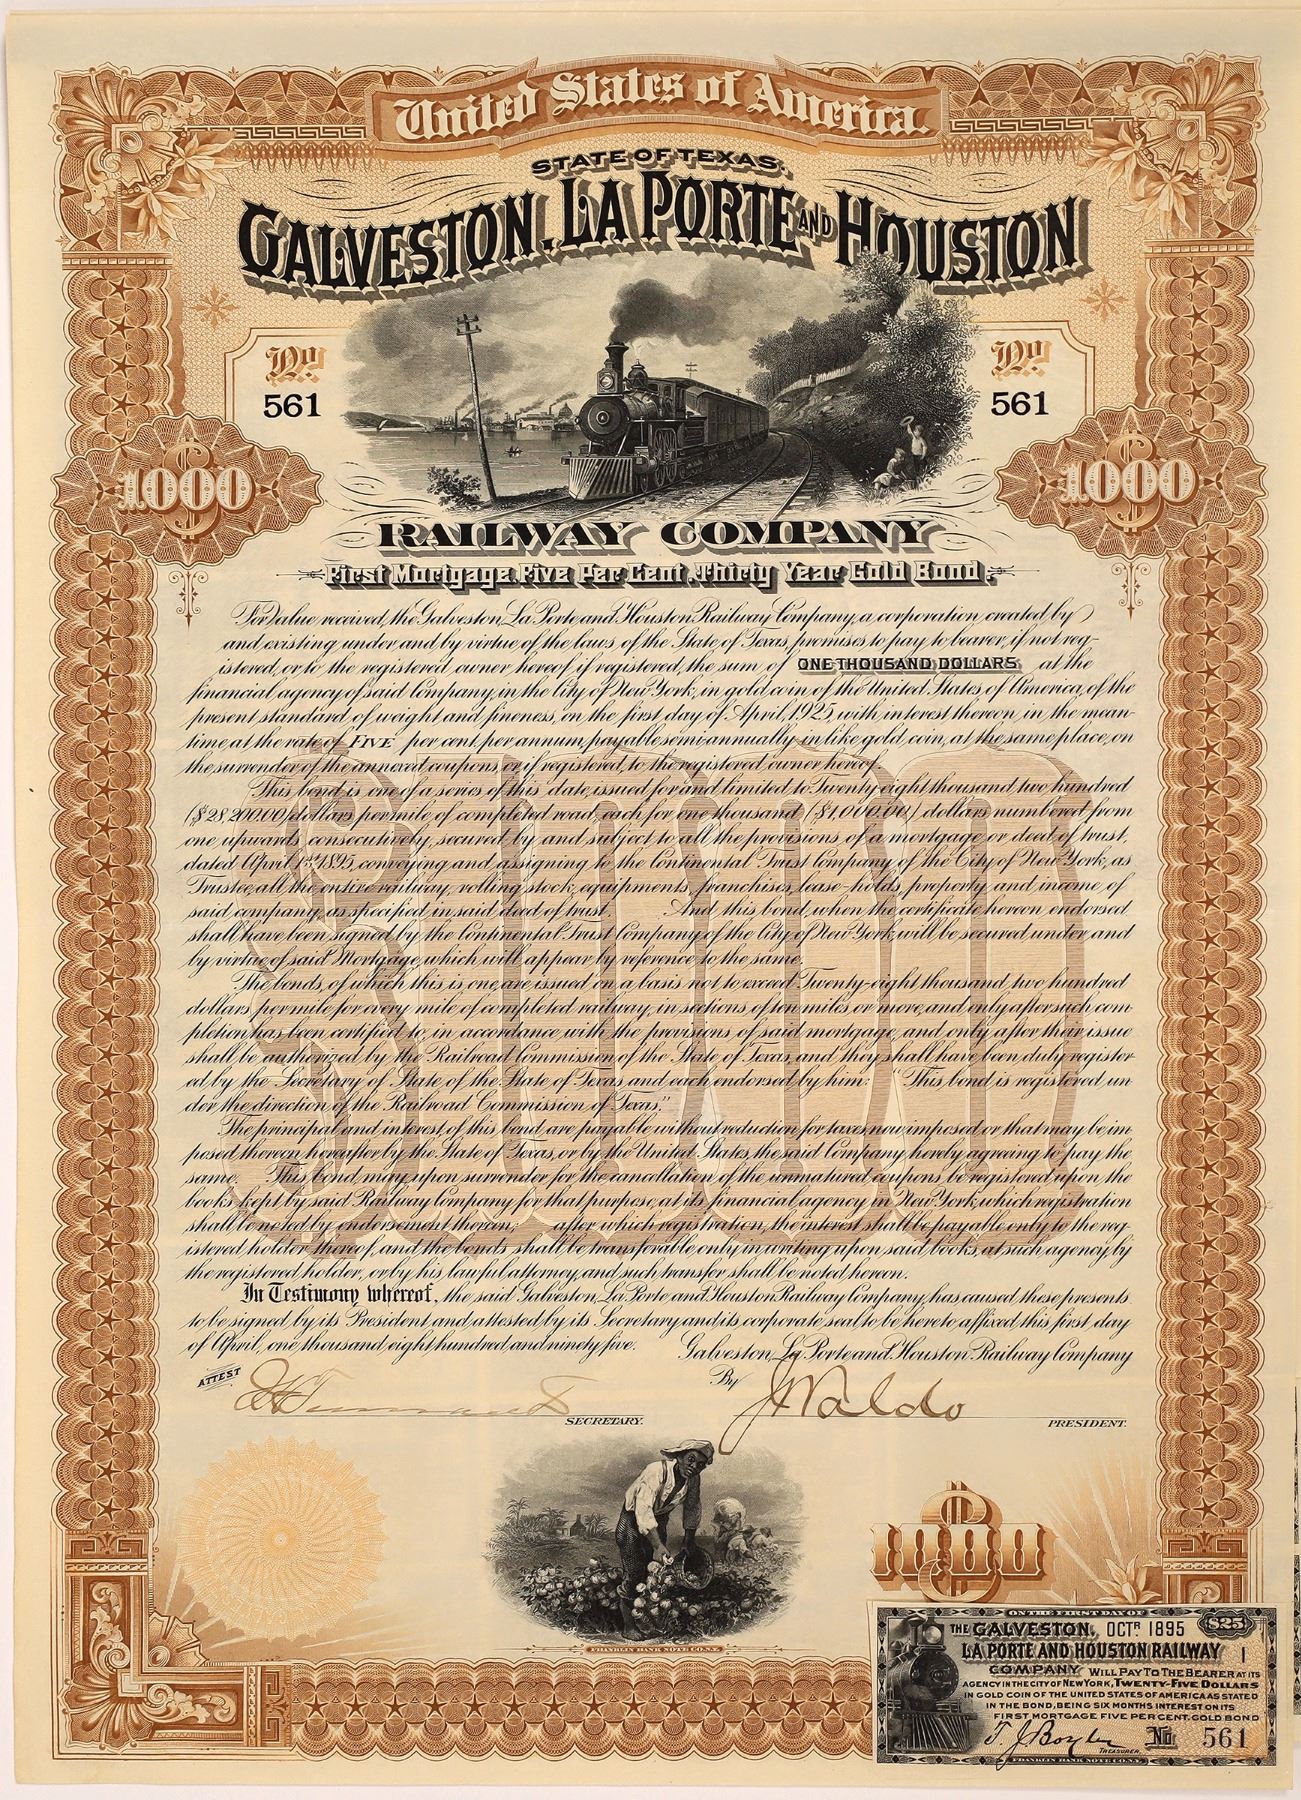 United States of America.
STATE OF TEXAS.
GALVESTON, LA PORTE AND HOUSTON
No 561
No 561
1000
1000
RAILWAY COMPANY
First Mortgage, Five Per Cent, Thirty Year Gold Bond.
For Value received, the Galveston, La Porte and Houston Railway Company, a corporation created by
and existing under and by virtue of the laws of the State of Texas, promises to pay to bearer, if not reg-
istered, or to the registered owner hereof if registered, the sum of ONE THOUSAND DOLLARS at the
financial agency of said Company, in the City of New York, in gold coin of the United States of America, of the
present standard of weight and fineness, on the first day of April, 1925, with interest thereon, in the mean-
time at the rate of FIVE per cent. per annum, payable semi-annually in like gold coin, at the same place, on
the surrender of the annexed coupons, or if registered, to the registered owner hereof.
This bond is one of a series of this date, issued for and limited to Twenty-eight thousand two hundred
($28,200.00) dollars per mile of completed road, each for one thousand ($1,000.00) dollars numbered from
one upwards consecutively, secured by and subject to all the provisions of a mortgage or deed of trust,
dated April 1st 1895, conveying and assigning to the Continental Trust Company of the City of New York, as
Trustee, all the entire railway, rolling stock, equipments, franchises, lease-holds, property and income of
said company, as specified in said deed of trust. And this bond, when the certificate hereon endorsed
shall have been signed by the Continental Trust Company of the City of New York, will be secured under, and
by virtue of said Mortgage, which will appear by reference to the same.
The bonds, of which this is one, are issued on a basis not to exceed Twenty-eight thousand two hundred
dollars per mile for every mile of completed railway, in sections of ten miles or more, and only after such com
pletion has been certified to, in accordance with the provisions of said mortgage, and only after their issue
shall be authorized by the Railroad Commission of the State of Texas, and they shall have been duly register
ed by the Secretary of State of the State of Texas, and each endorsed by him: "This bond is registered un
der the direction of the Railroad Commission of Texas."
The principal and interest of this bond are payable without reduction for taxes now imposed or that may be im
posed thereon hereafter by the State of Texas, or by the United States, the said Company hereby agreeing to pay the
same. This bond may upon surrender for the cancellation of the unmatured coupons, be registered upon the
books kept by said Railway Company for that purpose, at its financial agency in New York, which registration
shall be noted by endorsement thereon; after which registration, the interest shall be payable only to the reg-
istered holder thereof, and the bonds shall be transferable only in writing upon said books, at such agency, by
the registered holder, or by his lawful attorney, and such transfer shall be noted hereon.
In Testimony whereof, the said Galveston, La Porte and Houston Railway Company, has caused these presents
to be signed by its President and attested by its Secretary and its corporate seal to be hereto affixed this first day
of April, one thousand eight hundred and ninety five. Galveston, La Porte and Houston Railway Company
ATTEST
SECRETARY.
By J Waldo
PRESIDENT.
FRANKLIN BANK NOTE CO. N.Y.
$1000
ON THE FIRST DAY OF
THE GALVESTON, OCTR 1895 $25
LA PORTE AND HOUSTON RAILWAY 1
COMPANY WILL PAY TO THE BEARER AT ITS
AGENCY IN THE CITY OF NEW YORK, TWENTY-FIVE DOLLARS
IN GOLD COIN OF THE UNITED STATES OF AMERICA AS STATED
IN THE BOND, BEING SIX MONTHS INTEREST ON ITS
FIRST MORTGAGE FIVE PER CENT. GOLD BOND
T. J. Boyles TREASURER. No 561
FRANKLIN BANK NOTE CO. N.Y.